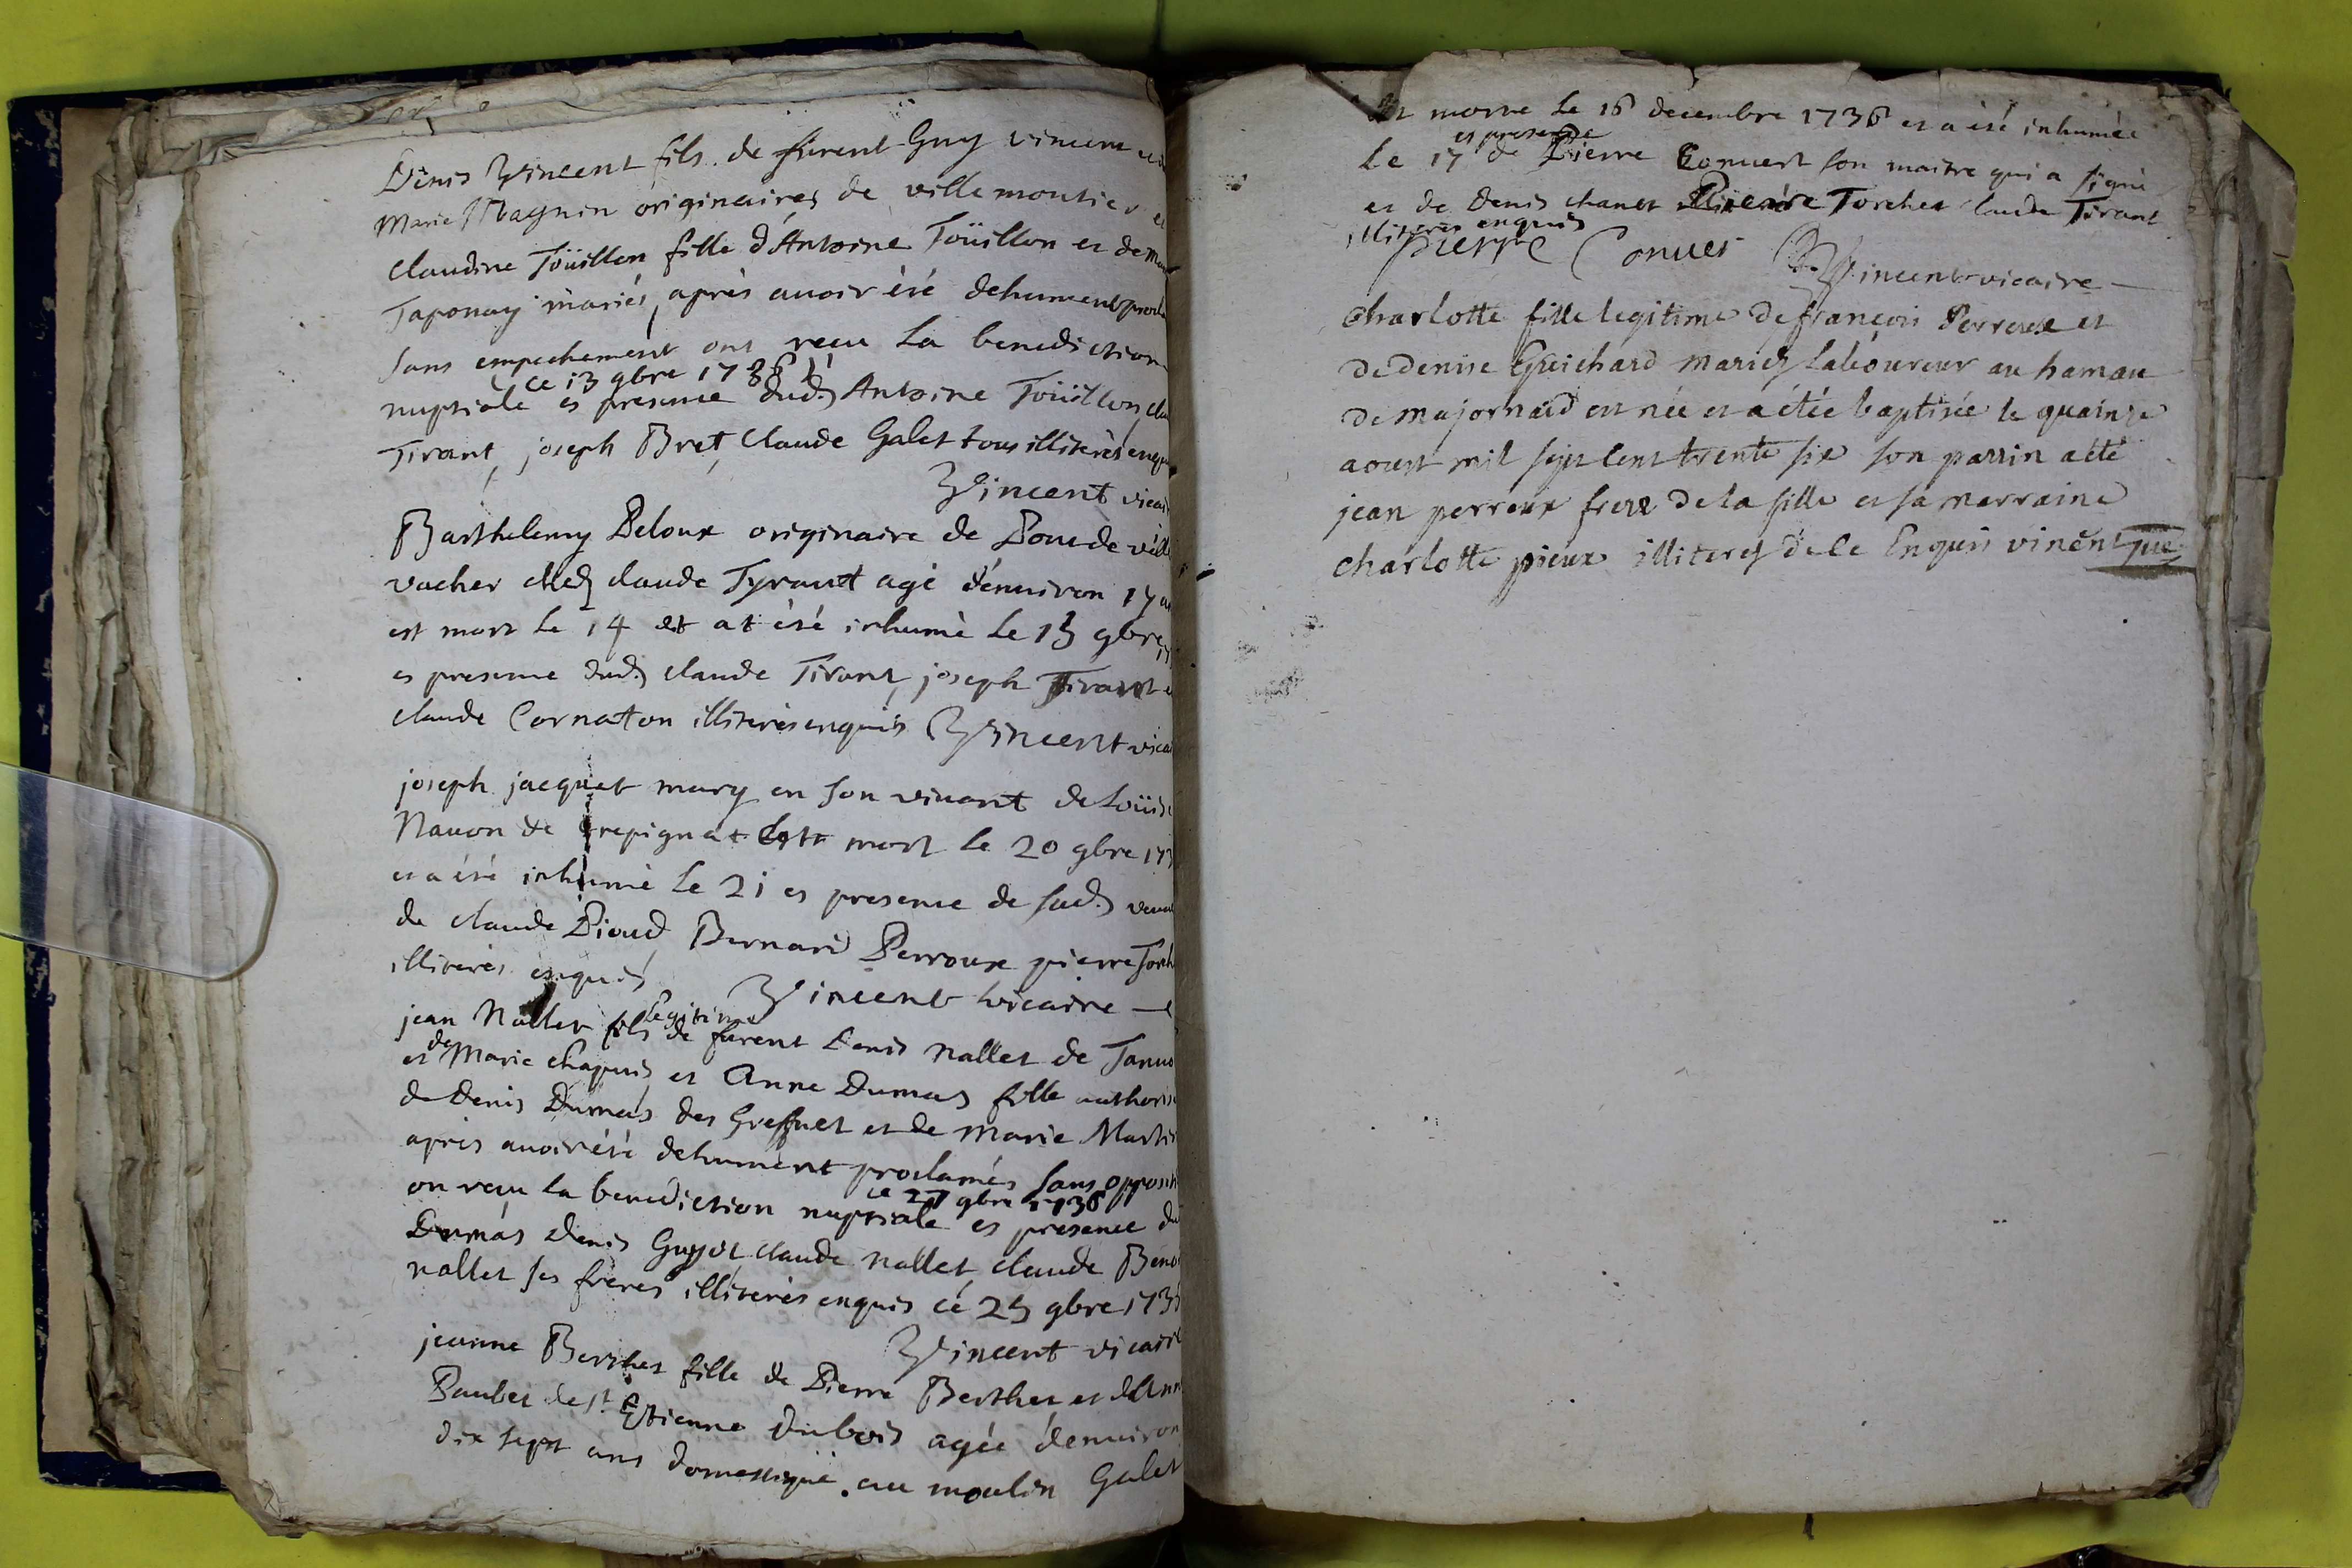 Denis Vincent fils de furent Guy vincent et de
Marie Magnin originaires de ville moutier et
claudine Toüillon fille d'Antoine Toüillon et de Ma
Taponay mariés, après auoir été dehument procla
sans empechement ont reçu la benediction
ce 13 9bre 1736
nuptiale es presence dud. Antoine Toüillon, clau
Tirant, joseph Bret, Claude Galet tous illiterés enquis
Vincent vicai
Barthelemy Peloux originaire de Pont de veille
vacher chez claude Tyrant agé d'enuiron 17 an
est mort le 14 et at été inhumé le 15 9bre
es presence dud. claude Tirant, joseph Tirant e
claude Cornaton illiterés enquis Vincent vicai
joseph jacquet mary en son viuant de Loüise
Nauon de Crepignat est mort le 20 9bre 173
et a été inhumé le 21 es presence de sad. veuue
de claude Pioud, Bernard Perroux pierre Torch
illiterés enquis Vincent vicaire
legitime
jean Nallet fils de furent Denis nallet de Januo
et de Marie chapuis et Anne Dumas fille authoris
de Denis Dumas des Greffiet et de Marie Marti
après auoir été dehument proclamés sans opposit
ce 27 9bre 1736
on reçu la benediction nuptiale es presence du
Dumas Denis Guyot, claude nallet, claude Beno
nallet ses frères illiterés enquis cé 25 9bre 173
Vincent vicaire
jeanne Berthet fille de Pierre Berthet et d'Ann
Paubet de st Etienne Dubois agée d'enuiron
dix sept ans domestique au moulin Galet
est morte le 16 décembre 1736 et a été inhumée
es presence
le 17 de Pierre Conuert son maitre qui a signé
et de Denis chanet Pierre Torchet laude Tirant
illiteres enquis
pierre Conuer Vincent vicaire
charlotte fille legitime de françois Perroux et
de denise Guichard mariez laboureur au hamau
de majornard est née et a étée baptisée le quainze
aoust mil sept cent trente six son parrin a été
jean perroux frere de la fille et sa marraine
charlotte pieux illiterez de ce Enquis vincent